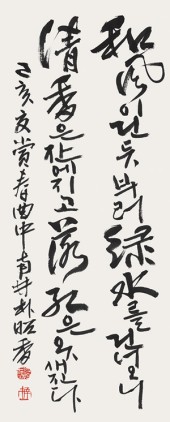 和風이 건듯 부러 綠水를 건너오니
清香은 잔에 지고 落紅은 옷새 진다
己亥夏 賞春曲中